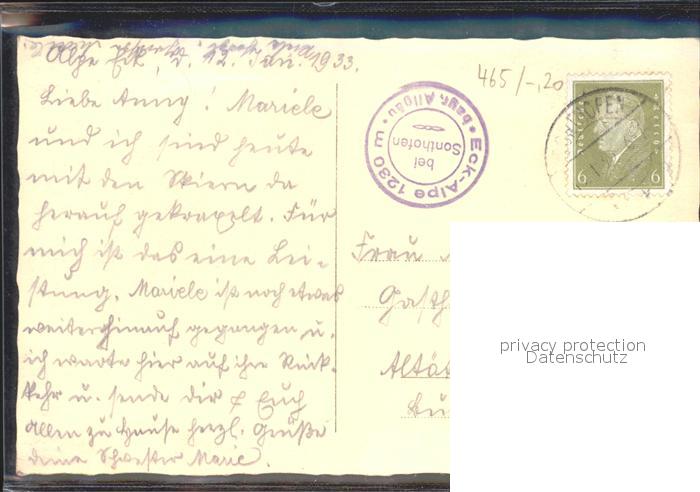 Alpe Eck, d. 2. Jan. 1933.
Liebe Anny! Mariele
und ich sind heute
mit den Skiern da
herauf gekraxelt. Für
mich ist das eine Lei-
stung. Mariele ist noch etwas
weiter hinauf gegangen u.
ich warte hier auf ihre Rück-
kehr u. sende dir & Euch
allen zu Hause herzl. Grüße
deine Schwester Marie.
465/-,20
Eck-Alpe 1230 m
bei
Sonthofen
bayr. Allgäu
SONTHOFEN
6 6
Frau
Gasth
Altät
privacy protection
Datenschutz